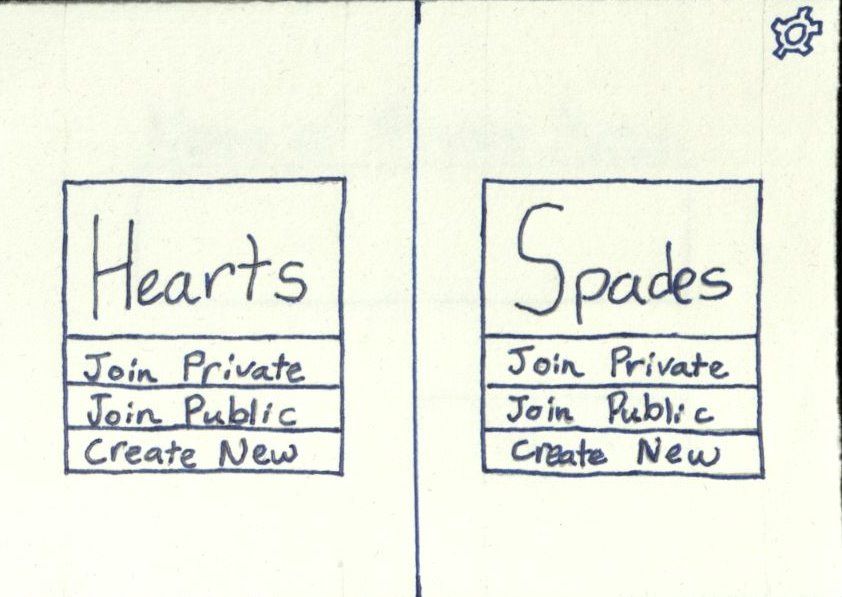 Hearts
Join Private
Join Public
Create New
Spades
Join Private
Join Public
Create New